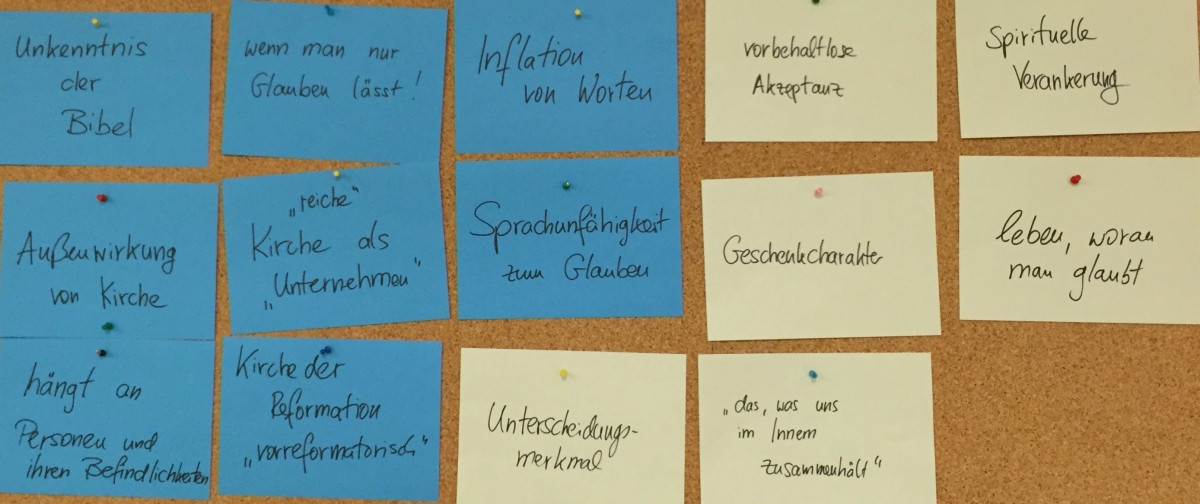 Unkenntnis
der
Bibel
wenn man nur
Glauben lässt!
Inflation
von Worten
vorbehaltlose
Akzeptanz
Spirituelle
Verankerung
Außenwirkung
von Kirche
„reiche“
Kirche als
„Unternehmen“
Sprachunfähigkeit
zum Glauben
Geschenkcharakter
leben, woran
man glaubt
hängt an
Personen und
ihren Befindlichkeiten
Kirche der
Reformation
„vorreformatorisch“
Unterscheidungs-
merkmal
„das, was uns
im Innern
zusammenhält“